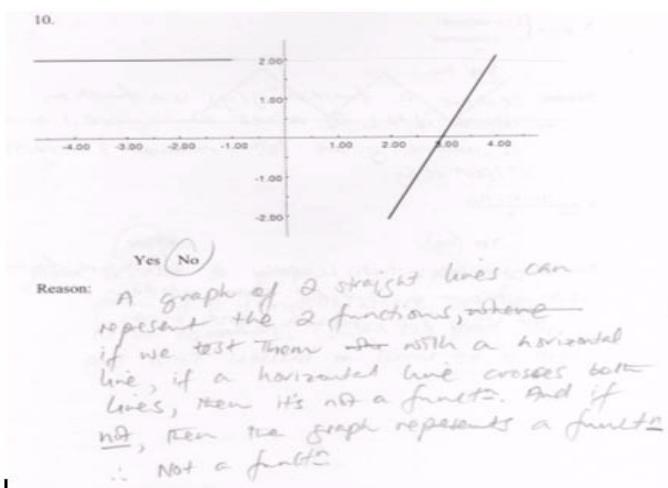 10.
2.00
1.00
-4.00 -3.00 -2.00 -1.00 1.00 2.00 3.00 4.00
-1.00
-2.00
Yes No
Reason: A graph of 2 straight lines can
repesent the 2 functions, where
if we test them with a horizontal
line, if a horizontal line crosses both
lines, then it's not a functn. And if
not, then the graph repesents a functn
∴ Not a functn